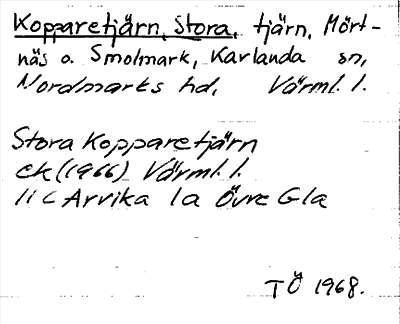 Kopparetjärn, Stora, tjärn, Mört-
näs o. Smolmark, Karlanda sn,
Nordmarks hd, Värml. l.
Stora Kopparetjärn
ek (1966) Värml. l.
11 C Arvika 1a Övre Gla
TÖ 1968.